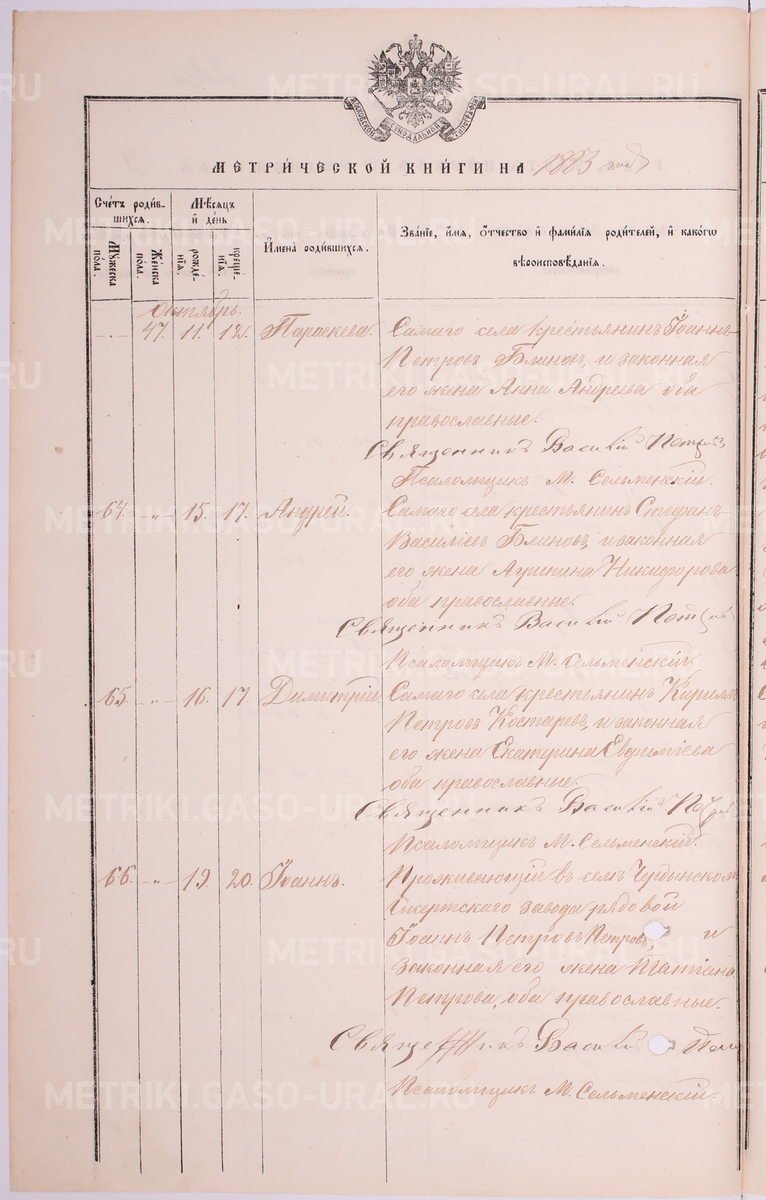 МОСКОВСКОЙ СѴНОДАЛЬНОЙ ТИПОГРАФІИ
МЕТРИ́ЧЕСКОЙ КНИ́ГИ НА 1883 годъ
Сче́тъ роди́вшихсѧ.
Мꙋ́жеска по́ла.
Же́нска по́ла.
Мѣ́сѧцъ и҆ де́нь
рожде́нїѧ.
креще́нїѧ.
И҆мена̀ роди́вшихсѧ.
Зва́нїе, и҆́мѧ, ѻ҆́тчество и҆ фами́лїѧ роди́телей, и҆ како́гѡ
вѣроисповѣ́данїѧ.
Октябрь.
47. 11. 12. Параскева. Самаго села крестьянинъ Іоаннъ
Петровъ Блиновъ, и законная
его жена Анна Андреева оба
православные.
Священникъ Василій
Псаломщикъ М. Сельменскій.
64. „ 15. 17. Андрей. Самаго села крестьянинъ Стефанъ
Василіевъ Блиновъ, и законная
его жена Никифорова
оба православные.
Священникъ Василій
Псаломщикъ М. Сельменскій.
65. „ 16. 17 Димитрій Самаго села крестьянинъ Кириллъ
Петровъ Костаревъ, и законная
его жена Екатерина Евфиміева
оба православные.
Священникъ Василій
Псаломщикъ М. Сельменскій.
66. „ 19. 20. Іоаннъ. Проживающій въ семъ
завода рядовой
Іоаннъ Петровъ Петровъ, и
законная его жена Татіана
Петрова, оба православные.
Священникъ Василій
Псаломщикъ М. Сельменскій.
METRIKI.GASO-URAL.RU